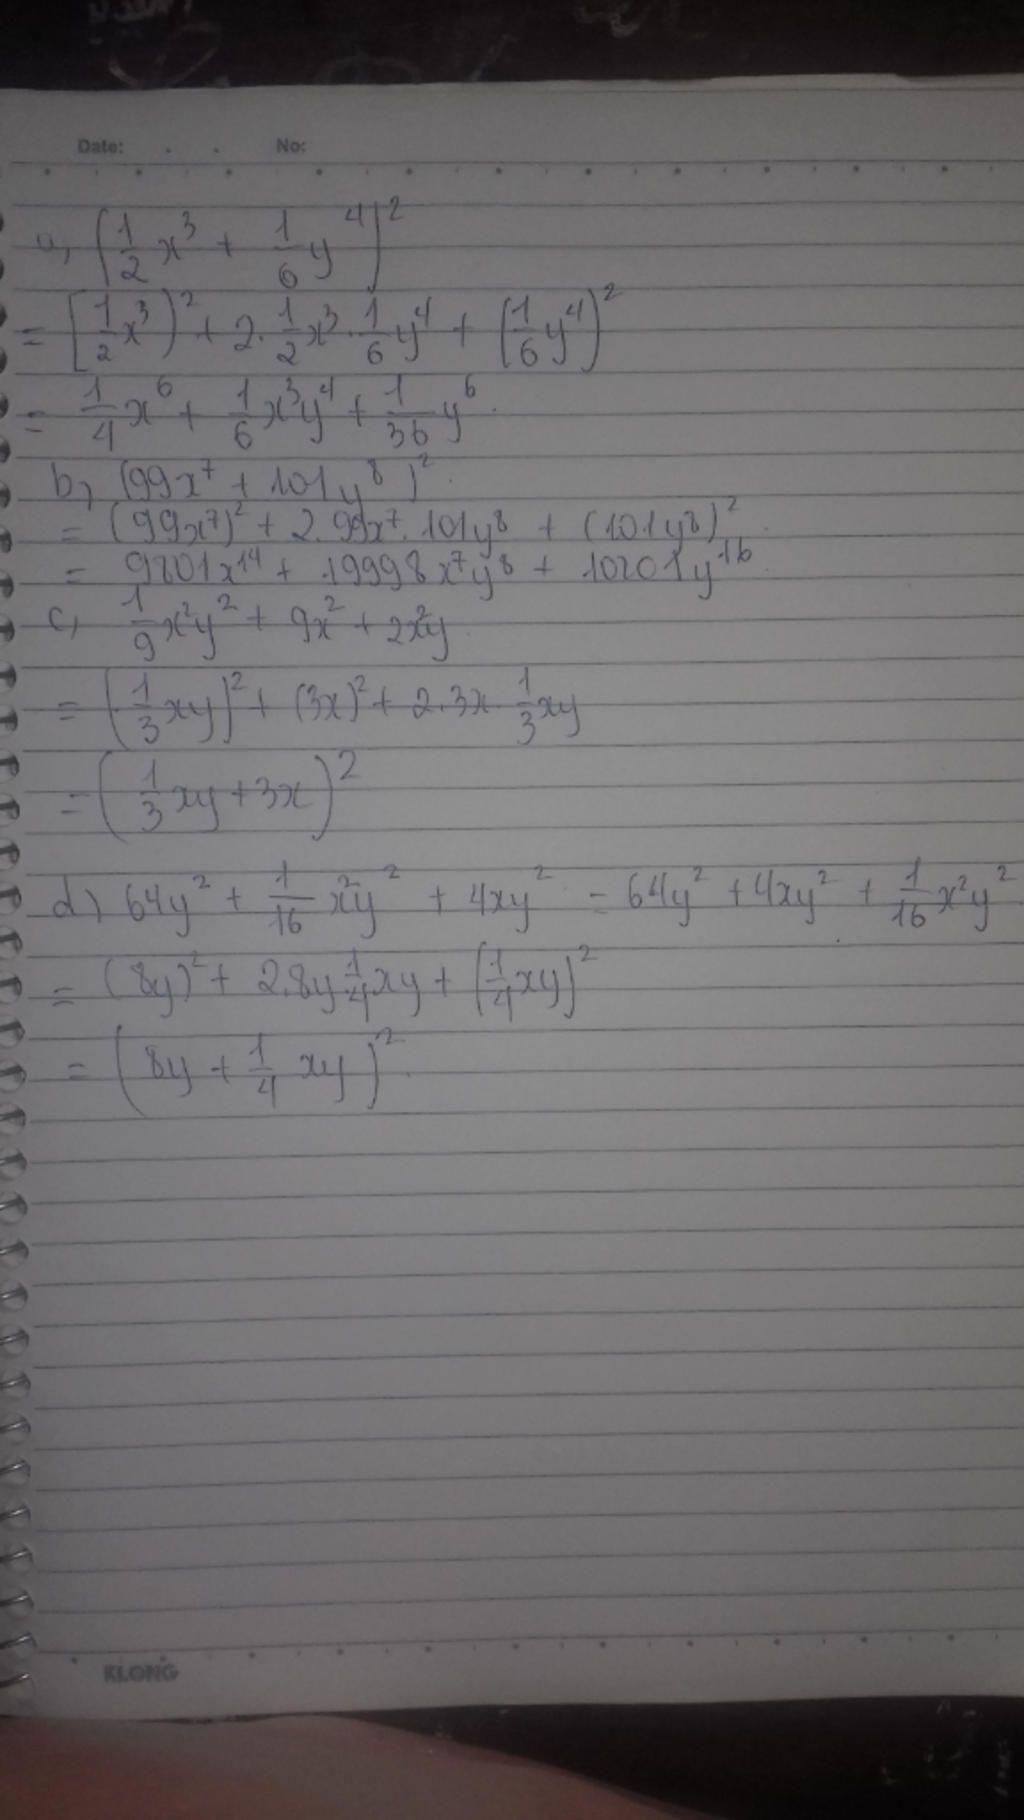 Date: . . No:
a, (1/2 x³ + 1/6 y⁴)²
= (1/2 x³)² + 2. 1/2 x³. 1/6 y⁴ + (1/6 y⁴)²
= 1/4 x⁶ + 1/6 x³y⁴ + 1/36 y⁶.
b, (99x⁷ + 101y⁸)².
= (99x⁷)² + 2.99x⁷.101y⁸ + (101y⁸)².
= 9801x¹⁴ + 19998x⁷y⁸ + 10201y¹⁶.
c, 1/9 x²y² + 9x² + 2x²y
= (1/3 xy)² + (3x)² + 2.3x. 1/3 xy
= (1/3 xy + 3x)²
d) 64y² + 1/16 x²y² + 4xy² = 64y² + 4xy² + 1/16 x²y².
= (8y)² + 2.8y 1/4 xy + (1/4 xy)²
= (8y + 1/4 xy)².
KLONG